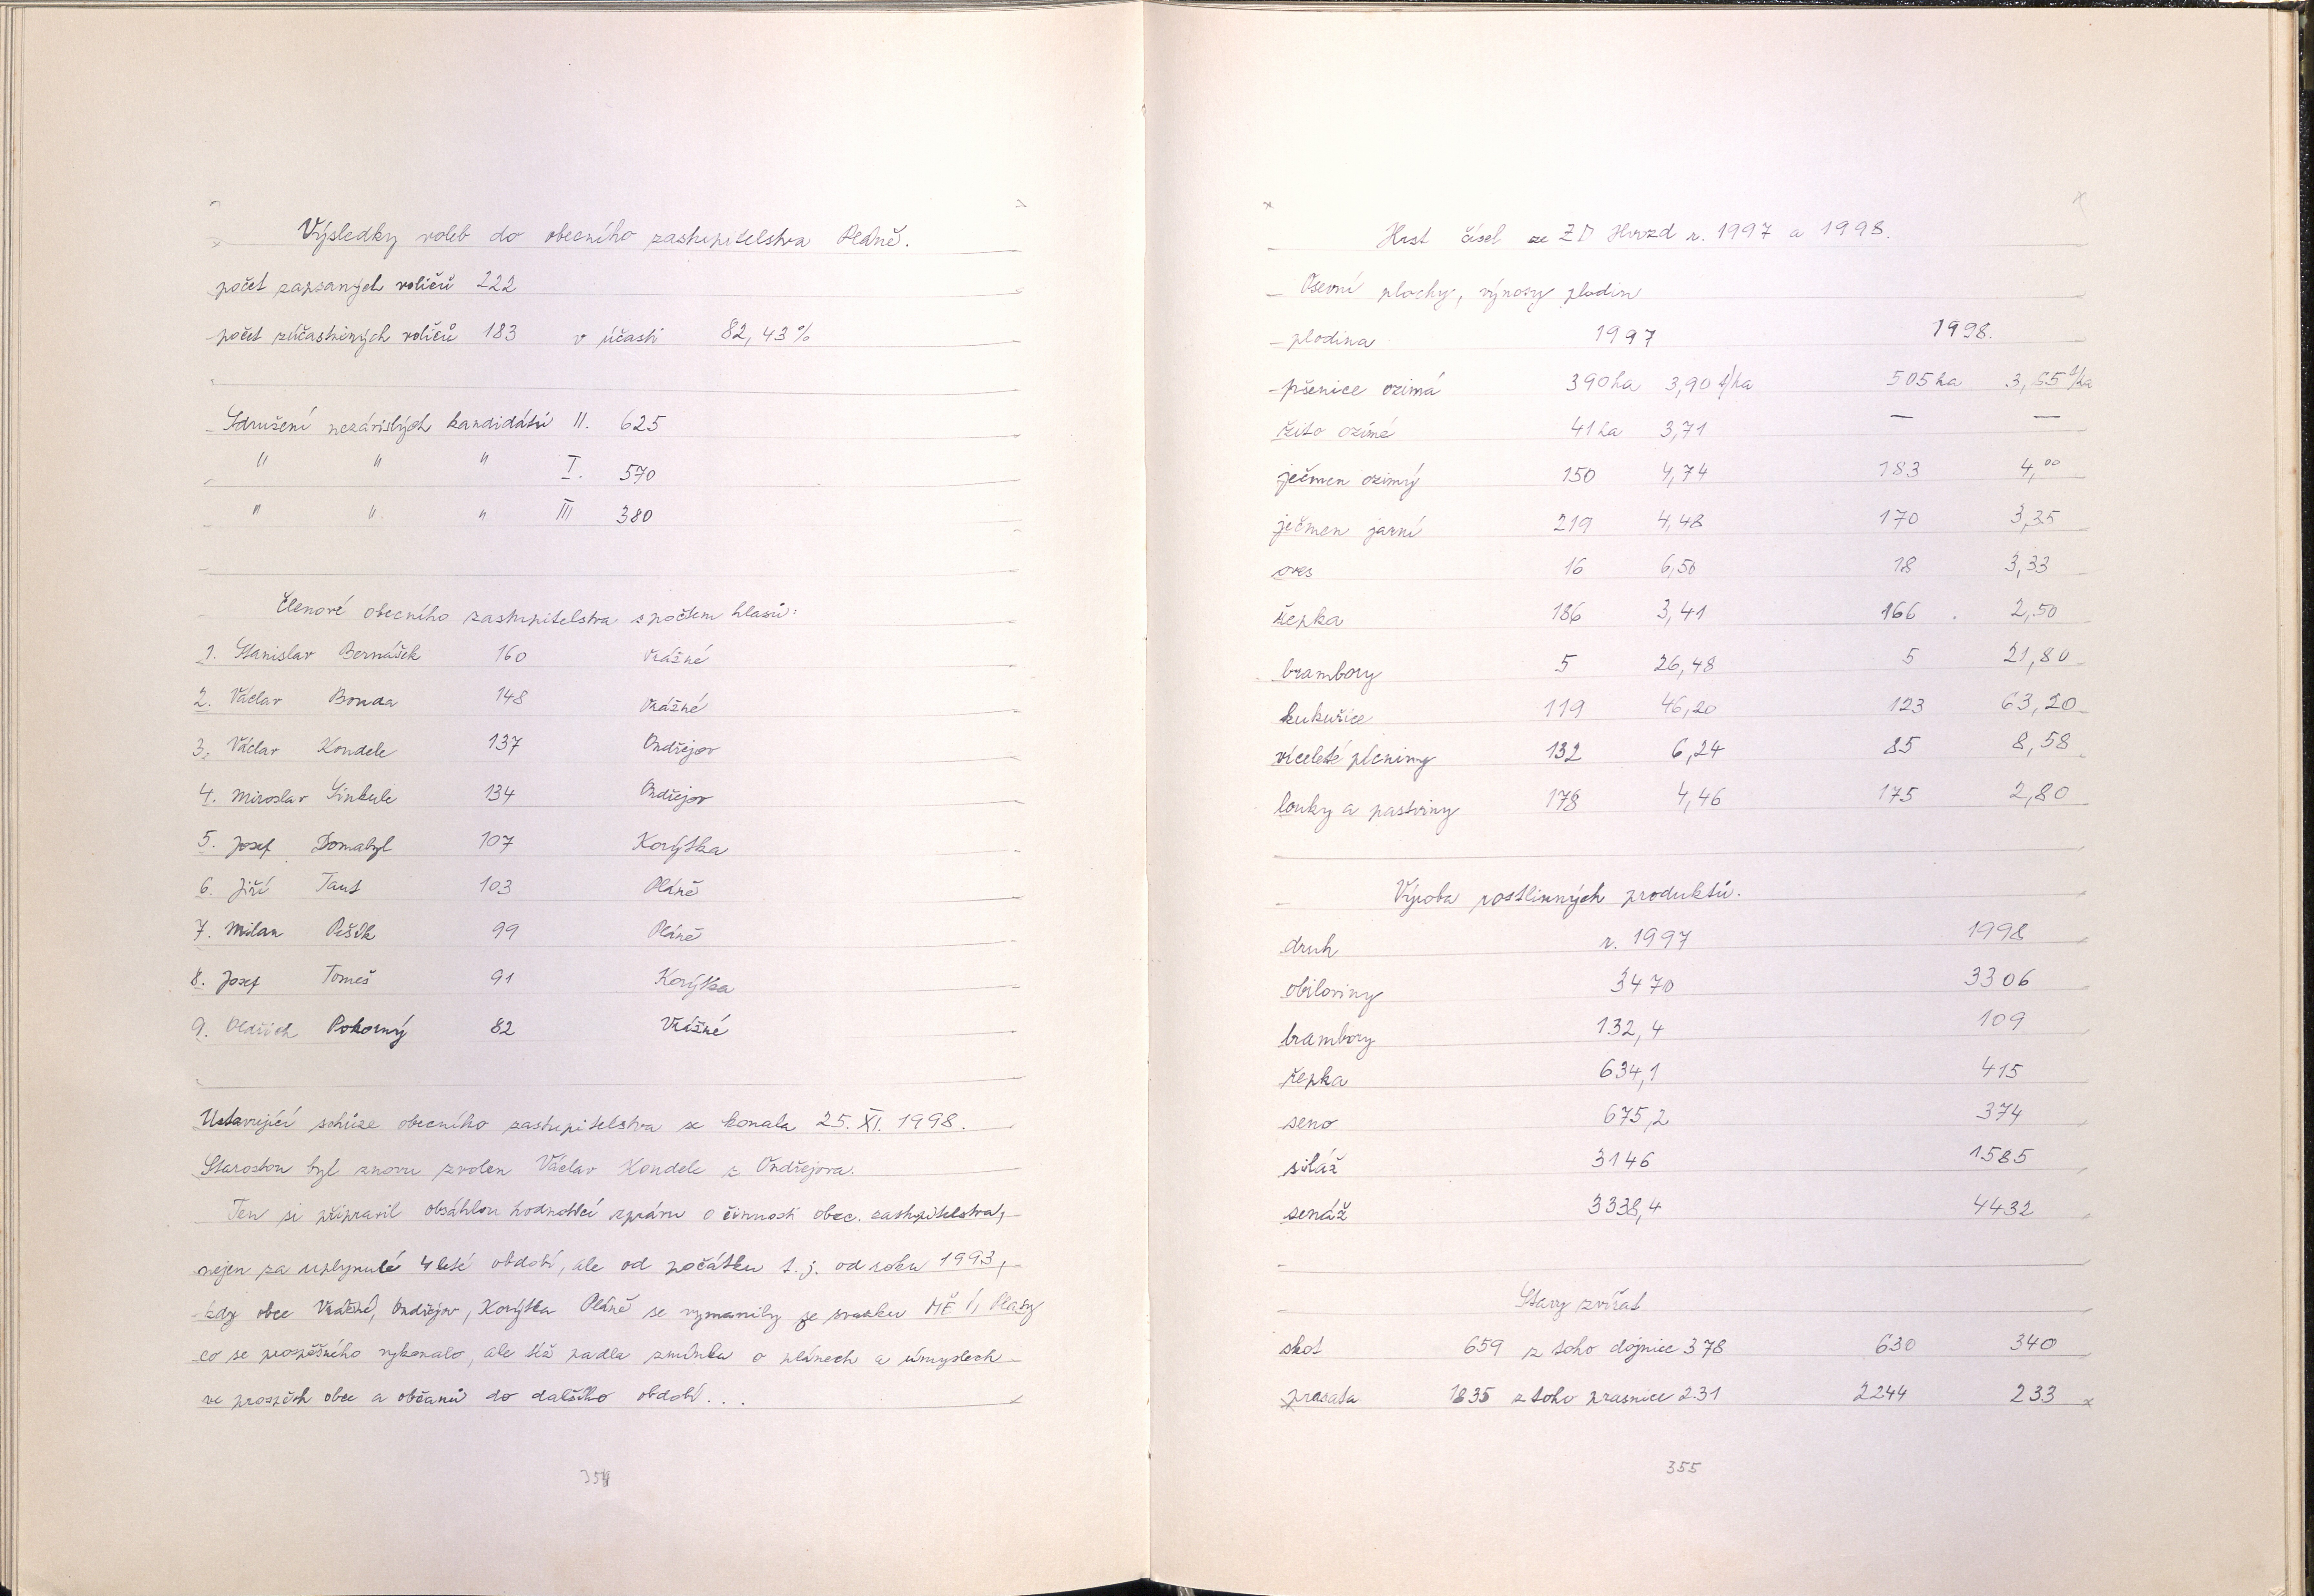 Výsledky voleb do obecního zastupitelstva Pláně.
počet zapsaných voličů 222
počet zúčastněných voličů 183 v účasti 82,43%
Sdružení nezávislých kandidátů II. 625
" " " I. 570
" " " III 380
Členové obecního zastupitelstva s počtem hlasů:
1. Stanislav Bernášek 160 Vrážné
2. Václav Bouda 148 Vrážné
3. Václav Kondele 137 Ondřejov
4. Miroslav Sinkule 134 Ondřejov
5. Josef Domabyl 107 Korýtka
6. Jiří Taut 103 Pláně
7. Milan Pešík 99 Pláně
8. Josef Tomeš 91 Korýtka
9. Oldřich Pokorný 82 Vrážné
Ustavující schůze obecního zastupitelstva se konala 25. XI. 1998.
Starostou byl znovu zvolen Václav Kondele z Ondřejova.
Ten si připravil obsáhlou hodnotící zprávu o činnosti obec. zastupitelstva,
nejen za uplynulé 4 leté období, ale od počátku t. j. od roku 1993,
kdy obce Vrážné, Ondřejov, Korýtka Pláně se vymanily ze svazku Plasy
co se prospěšného vykonalo, ale též padla zmínka o plánech a úmyslech
ve prospěch obce a občanů do dalšího období...
354
Hrst čísel ze ZD Hvozd r. 1997 a 1998.
Osevní plochy, výnosy plodin
plodina 1997 1998.
pšenice ozimá 390 ha 3,90 t/ha 505 ha 3,65 t/ha
žito ozimé 41 ha 3,71 — —
ječmen ozimý 150 4,74 183 4,00
ječmen jarní 219 4,48 170 3,35
oves 16 6,50 18 3,33
řepka 186 3,41 166 . 2,50
brambory 5 26,48 5 21,80
kukuřice 119 46,20 123 63,20
víceleté pícniny 132 6,24 85 8,58
louky a pastviny 178 4,46 175 2,80
Výroba rostlinných produktů.
druh r. 1997 1998
obiloviny 3470 3306
brambory 132,4 109
řepka 634,1 415
seno 675,2 374
siláž 3146 1585
senáž 3338,4 4432
Stavy zvířat
skot 659 z toho dojnice 378 630 340
prasata 1835 z toho prasnice 231 2244 233
355